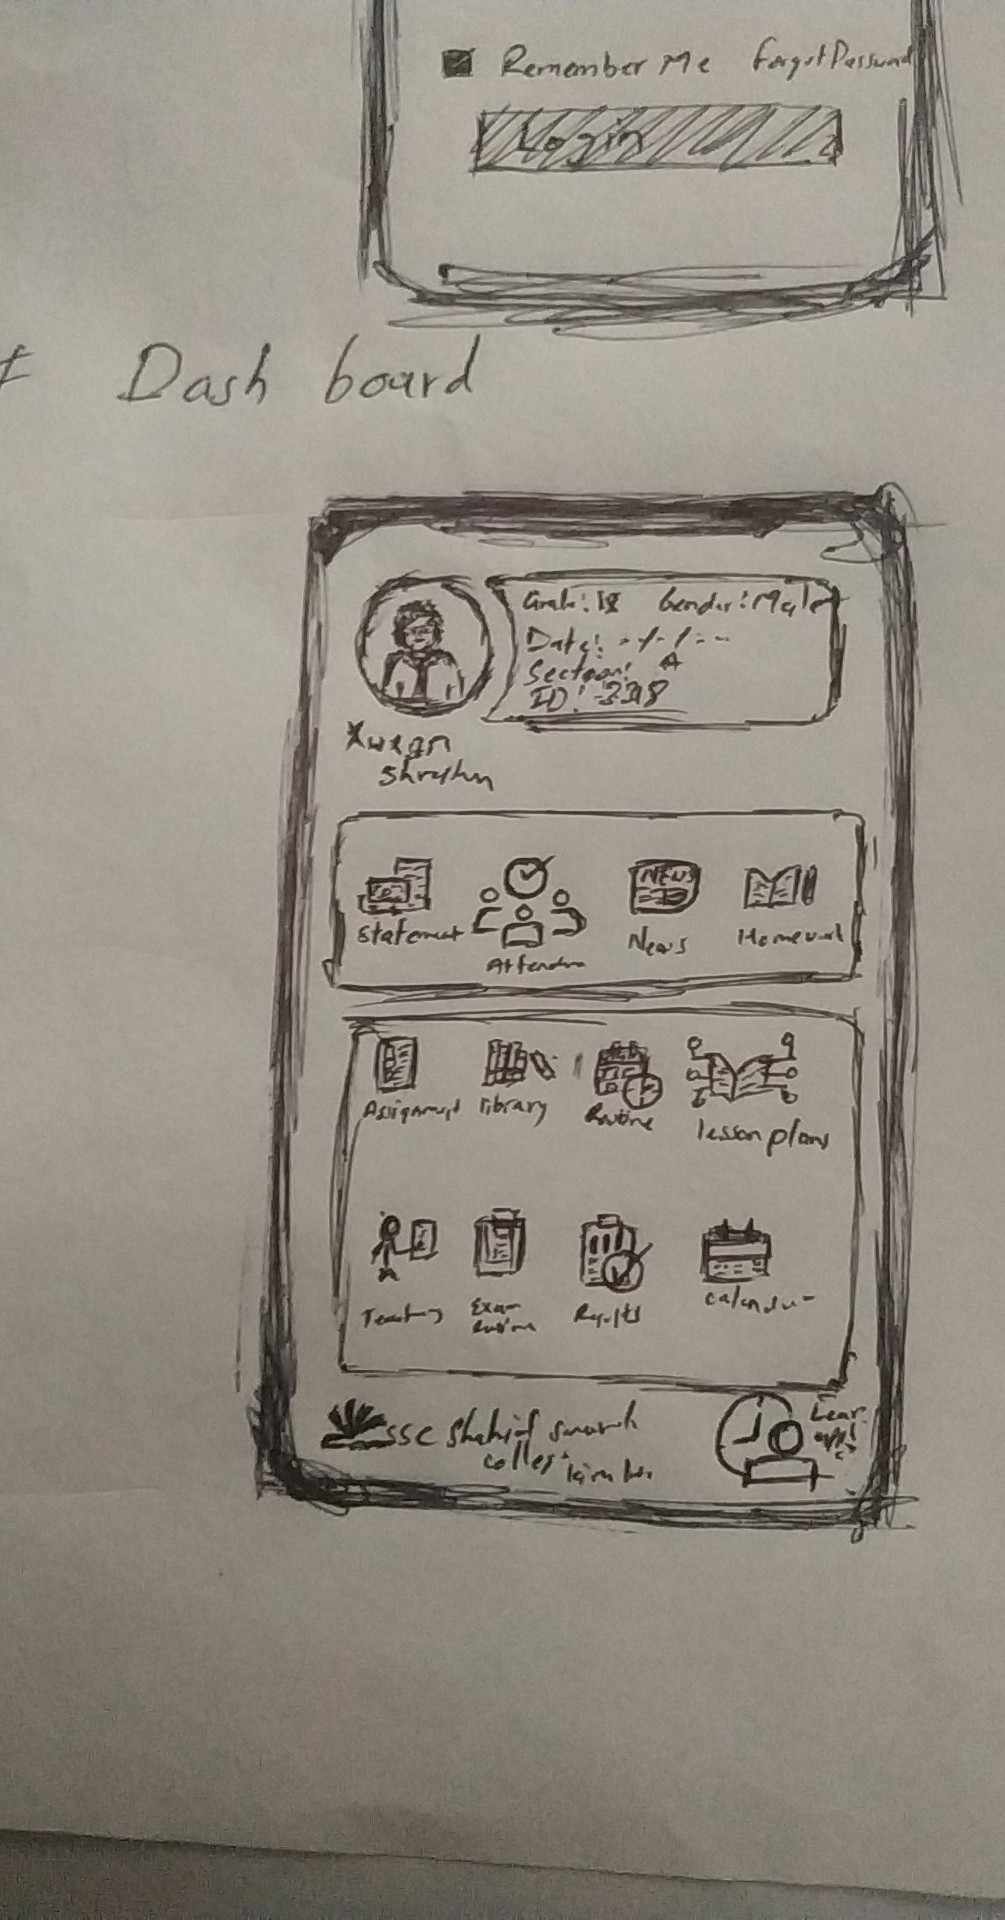 Remember Me Forgot Password
Login
Dash board
Grade: Gender: Male
Date: --/--/---
Section: A
ID:
NEWS
Statement Attendn News Homework
Assignment library Routine lesson plans
Exam Results calendar
SSC Shahid smarak
college